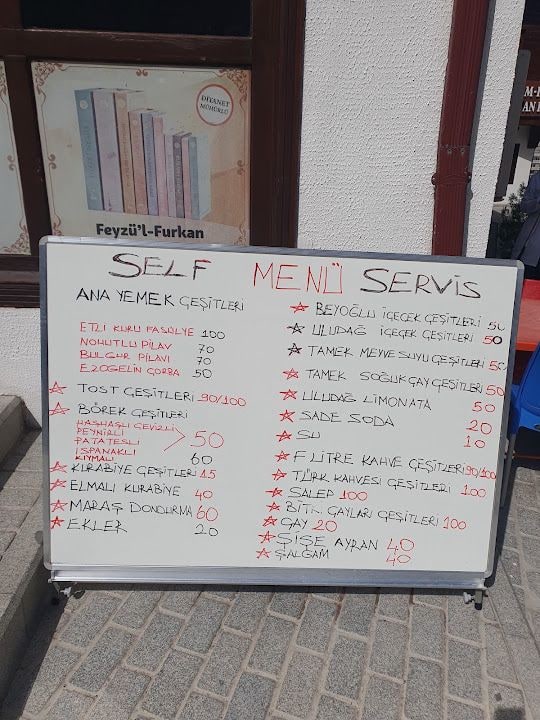 DİYANET
MÜHÜRLÜ
Feyzü'l-Furkan
SELF MENÜ SERVİS
ANA YEMEK ÇEŞİTLERİ
ETLİ KURU FASÜLYE 100
NOHUTLU PİLAV 70
BULGUR PİLAVI 70
EZOGELİN ÇORBA 50
TOST ÇEŞİTLERİ 90/100
BÖREK ÇEŞİTLERİ
HASHAŞLI CEVİZLİ
PEYNİRLİ
PATATESLİ 50
ISPANAKLI
KIYMALI 60
KURABİYE ÇEŞİTLERİ 15
ELMALI KURABİYE 40
MARAŞ DONDURMA 60
EKLER 20
BEYOĞLU İÇEÇEK ÇEŞİTLERİ 50
ULUDAĞ İÇEÇEK ÇEŞİTLERİ 50
TAMEK MEYVE SUYU ÇEŞİTLERİ 50
TAMEK SOĞUK ÇAY ÇEŞİTLERİ 50
ULUDAĞ LİMONATA 50
SADE SODA 20
SU 10
FİLTRE KAHVE ÇEŞİTLERİ 90/100
TÜRK KAHVESİ ÇEŞİTLERİ 100
SALEP 100
BİTKİ ÇAYLARI ÇEŞİTLERİ 100
ÇAY 20
ŞİŞE AYRAN 40
ŞALGAM 40